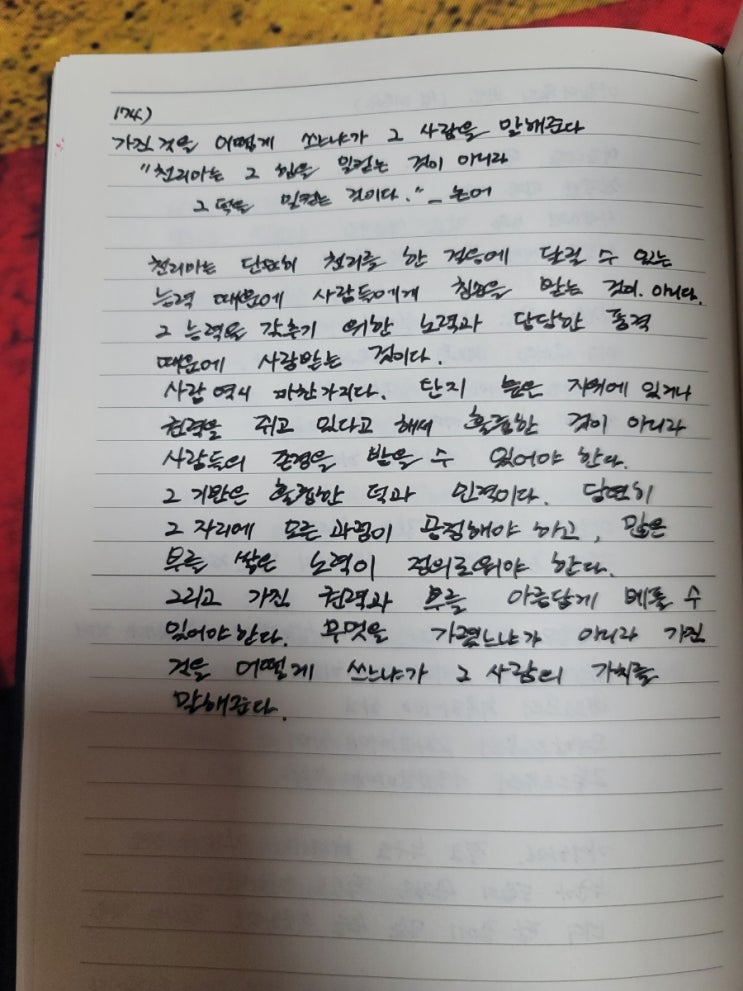 174)
가진 것을 어떻게 쓰느냐가 그 사람을 말해준다
"천리마는 그 힘을 일컫는 것이 아니라
그 덕을 일컫는 것이다." _ 논어
천리마는 단번히 천리를 한 걸음에 달릴 수 있는
능력 때문에 사람들에게 칭송을 받는 것이 아니다.
그 능력을 갖추기 위한 노력과 당당한 품격
때문에 사랑받는 것이다.
사람 역시 마찬가지다. 단지 높은 지위에 있거나
권력을 쥐고 있다고 해서 훌륭한 것이 아니라
사람들의 존경을 받을 수 있어야 한다.
그 기반은 훌륭한 덕과 인격이다. 당연히
그 자리에 오른 과정이 공정해야 하고, 많은
부를 쌓은 노력이 정의로워야 한다.
그리고 가진 권력과 부를 아름답게 베풀 수
있어야 한다. 무엇을 가졌느냐가 아니라 가진
것을 어떻게 쓰느냐가 그 사람의 가치를
말해준다.